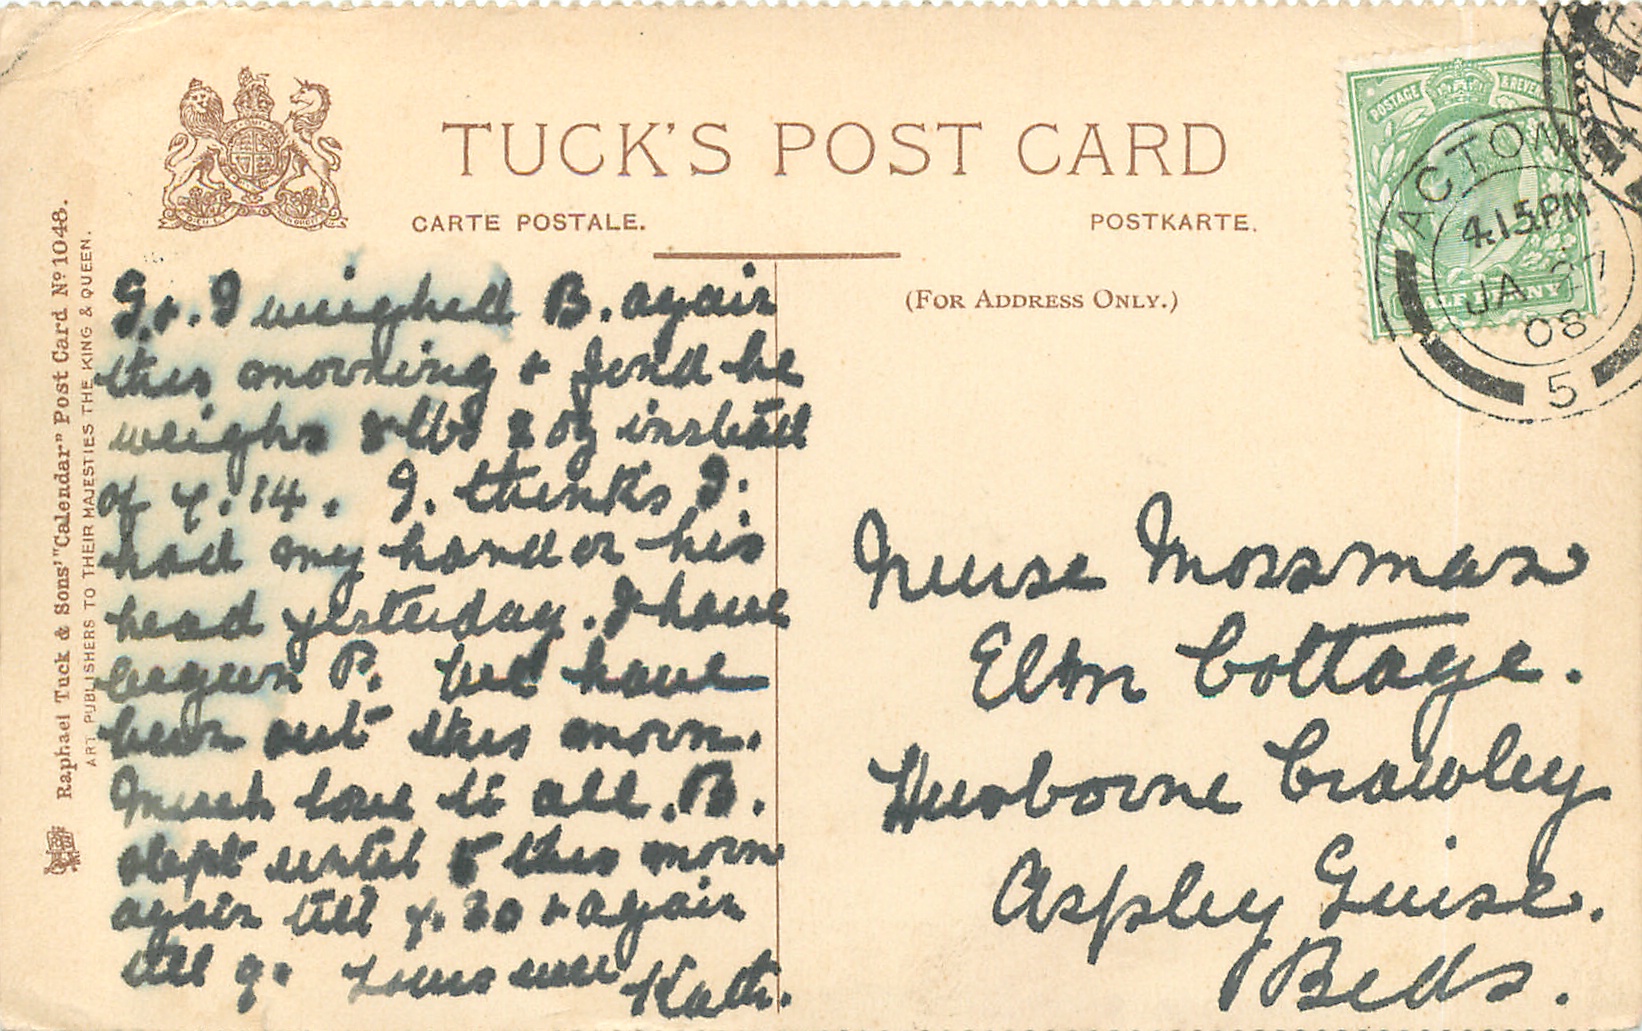 TUCK'S POST CARD
CARTE POSTALE.
POSTKARTE.
(FOR ADDRESS ONLY.)
Raphael Tuck & Sons' "Calendar" Post Card Nº 1048.
ART PUBLISHERS TO THEIR MAJESTIES THE KING & QUEEN.
POSTAGE & REVENUE
HALFPENNY
ACTON
4.15PM
JA 27
08
5
G. & I weighed B. again
this morning & find he
weighs 8 lbs 2 oz instead
of 7.14. G. thinks I.
had my hand on his
head yesterday. I have
begun P. We have
been out this morn.
Much love to all. B.
slept until 5 this morn
again till 7.30 & again
till 9. Yours ever
Kath.
Nurse Mossman
Elm Cottage.
Husborne Crawley
Aspley Guise.
Beds.